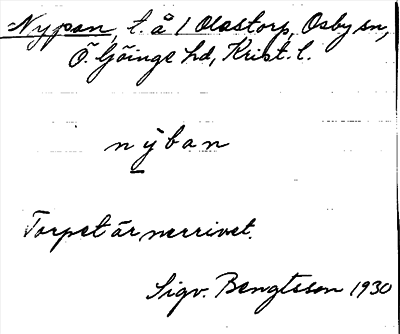 Nypan, t. å 1 Olastorp, Osby sn,
Ö. Göinge hd, Krist. l.
nȳban
Torpet är nerrivet.
Sigv. Bengtsson 1930